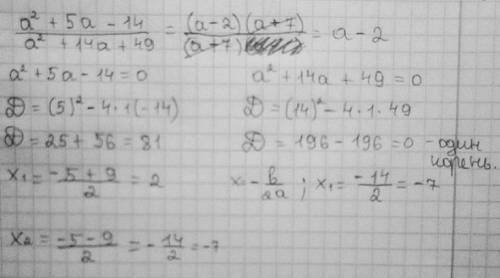 (a² + 5a - 14)/(a² + 14a + 49) = ((a-2)(a+7))/((a+7)) = a - 2
a² + 5a - 14 = 0
D = (5)² - 4·1(-14)
D = 25 + 56 = 81
x₁ = (-5+9)/2 = 2
x₂ = (-5-9)/2 = -14/2 = -7
a² + 14a + 49 = 0
D = (14)² - 4·1·49
D = 196 - 196 = 0 - один
корень.
x = -b/2a ; x₁ = -14/2 = -7